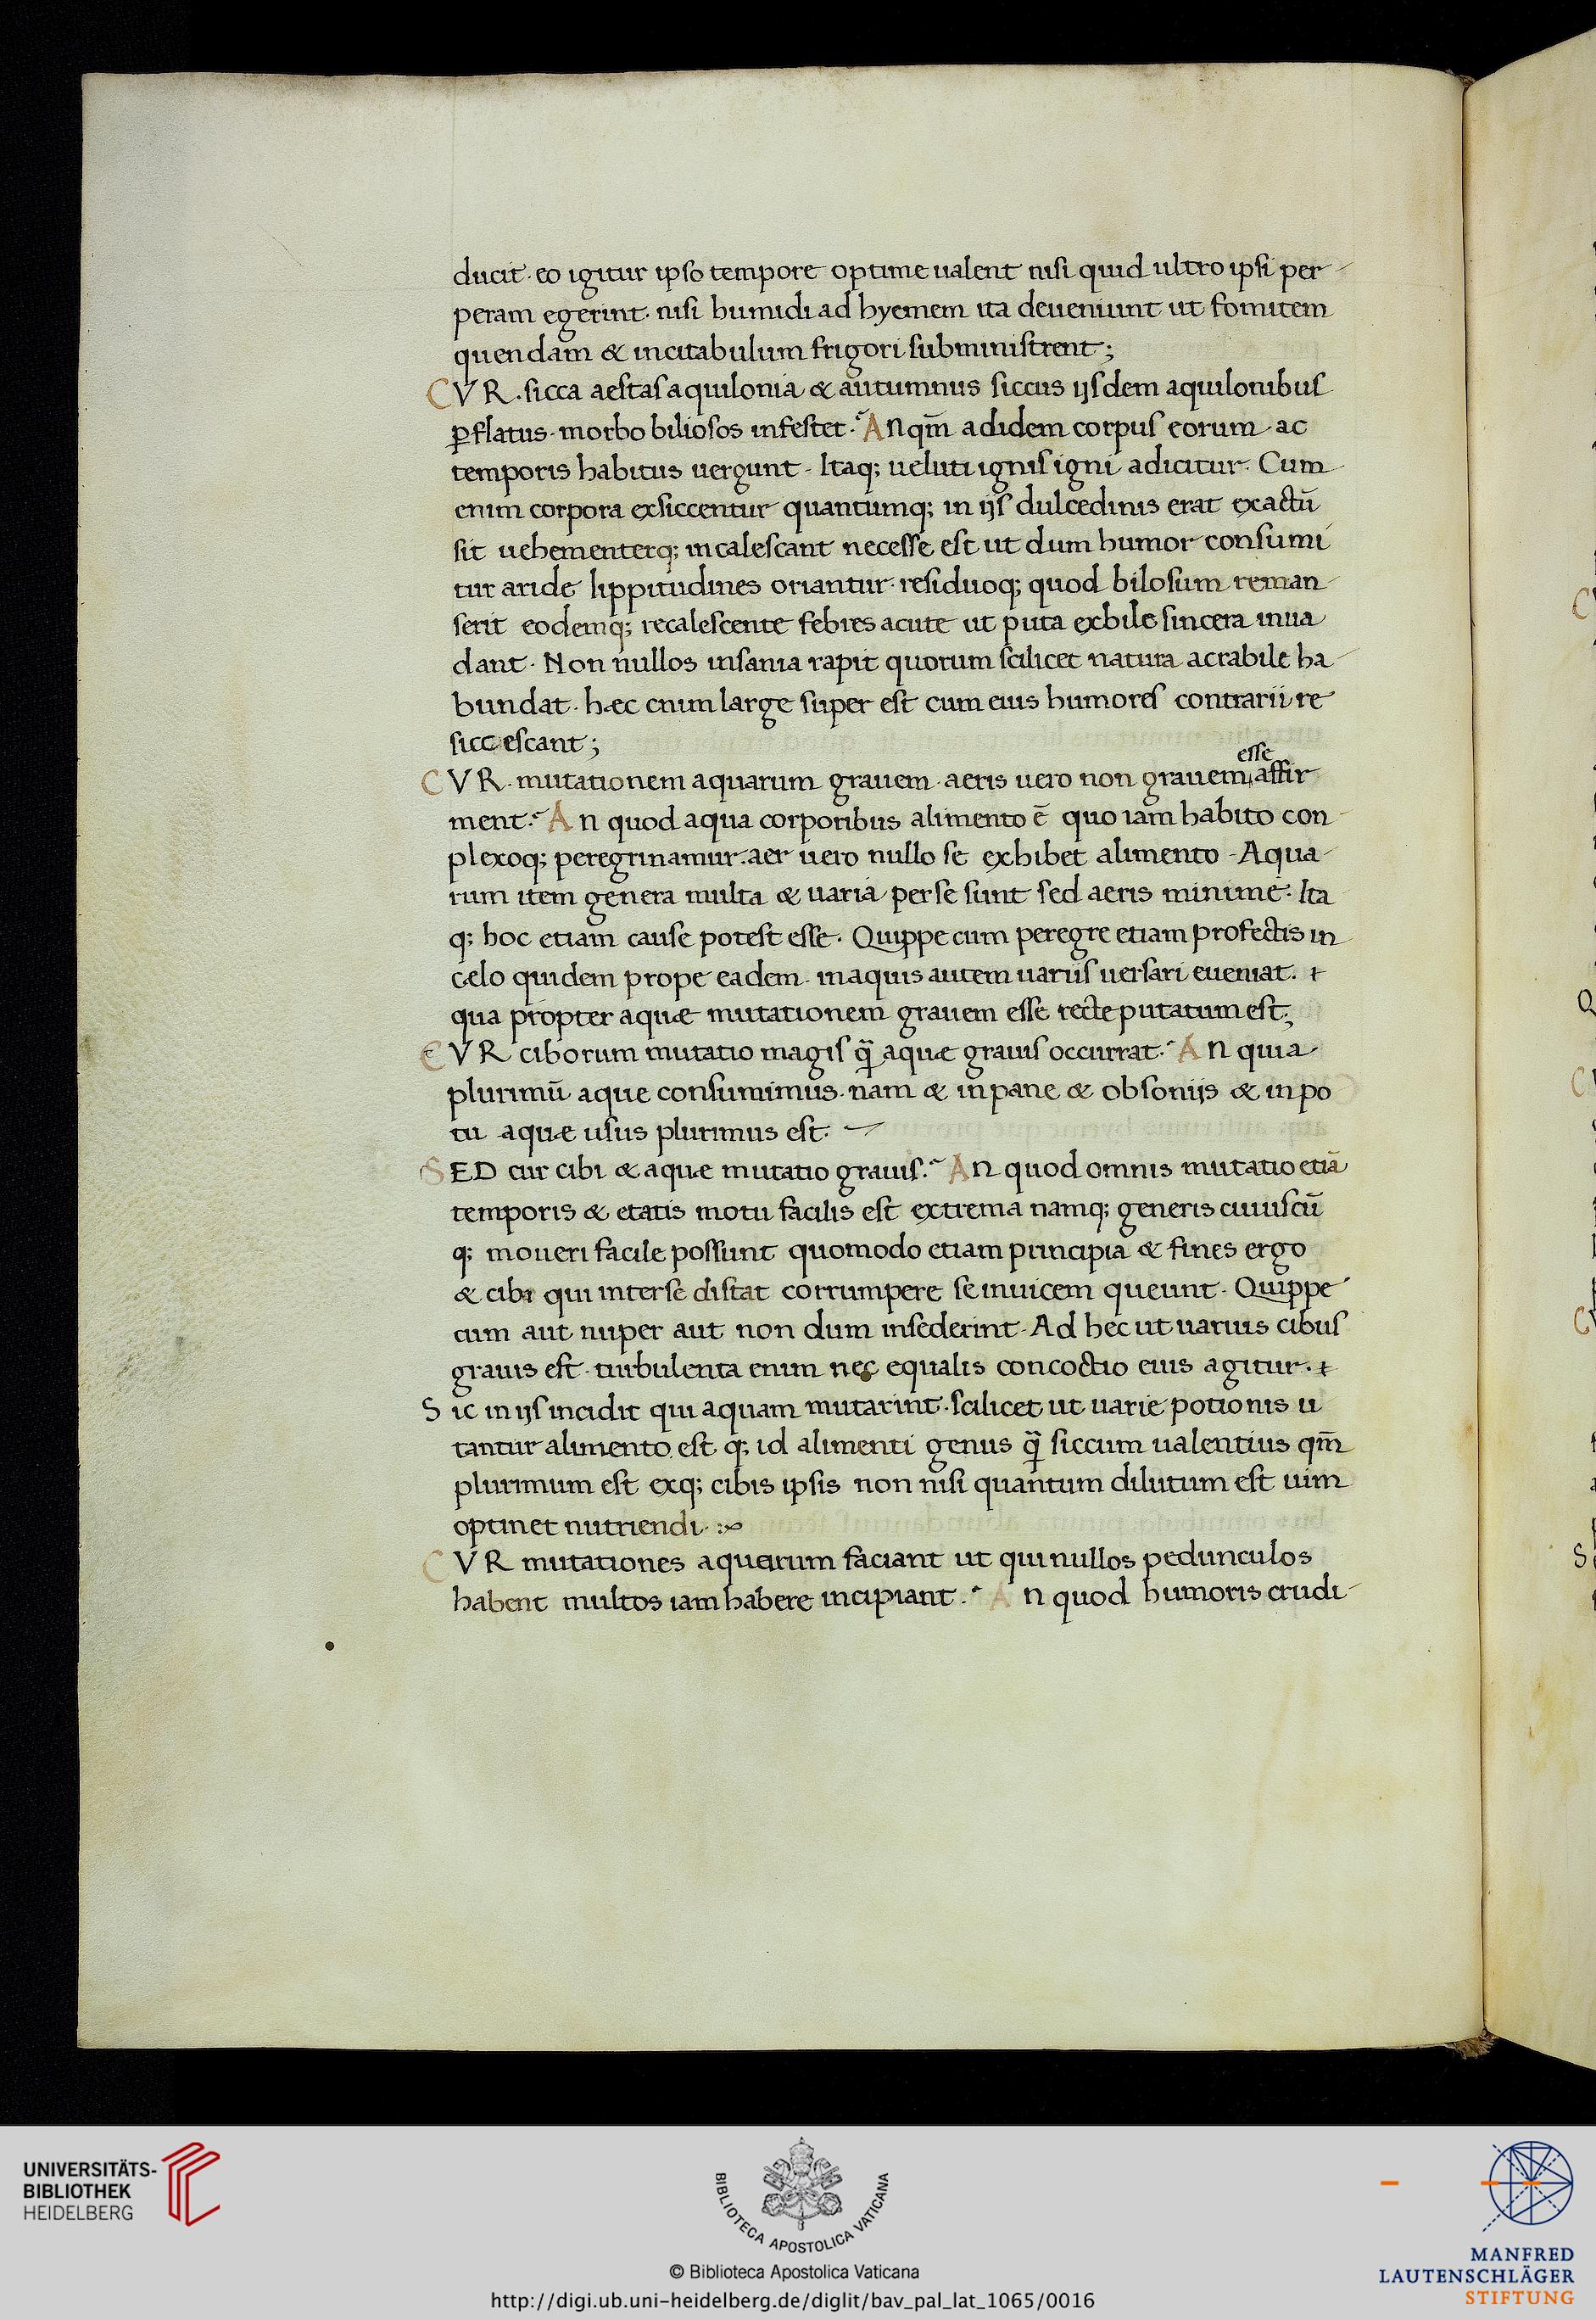 ducit · eo igitur ipso tempore optime ualent nisi quid ultro ipsi per
peram egerint · nisi humidi ad hyemem ita deueniunt ut fomitem
quendam & incitabulum frigori subministrent ;
CVR · sicca aestas aquilonia & autumnus siccus ijsdem aquilonibus
ꝑflatus · morbo biliosos infestet ·̃ An qm̃ ad idem corpus eorum · ac
temporis habitus uergunt · Itaq; ueluti ignis igni adicitur · Cum
enim corpora exsiccentur quantumq; in ijs dulcedinis erat exactũ
sit uehementerq; incalescant necesse est ut dum humor consumi
tur aride lippitudines oriantur · residuoq; quod bilosum reman
serit eodemq; recalescente febres acute ut puta ex bile sincera inua
dant · Non nullos insania rapit quorum scilicet natura acrabile ha
bundat · hæc enim large super est cum eius humores contrarii re
siccescant ;
CVR · mutationem aquarum grauem · aeris uero non grauem esse affir
ment ·̃ An quod aqua corporibus alimento ē quo iam habito con
plexoq; peregrinamur · aer uero nullo se exhibet alimento · Aqua
rum item genera multa & uaria per se sunt sed aeris minime · Ita
q; hoc etiam cause potest esse · Quippe cum peregre etiam profectis in
celo quidem prope eadem · in aquis autem uariis uersari eueniat ·
qua propter aquæ mutationem grauem esse recte putatum est ;
CVR ciborum mutatio magis q̃ aquæ grauis occurrat ·̃ An quia
plurimũ aque consumimus · nam & in pane & obsonijs & in po
tu aquæ usus plurimus est ·
SED cur cibi & aquæ mutatio grauis ·̃ An quod omnis mutatio etiã
temporis & etatis motu facilis est extrema namq; generis cuiuscũ
q; moueri facile possunt quomodo etiam principia & fines ergo
& cibi qui inter se distat corrumpere se inuicem queunt · Quippe
cum aut nuper aut non dum insederint · Ad hec ut uarius cibus
grauis est · turbulenta enim nec equalis concoctio eius agitur ·
Sic in ijs incidit qui aquam mutarint · scilicet ut uarie potionis u
tantur alimento est q; id alimenti genus q̃ siccum ualentius qm̃
plurimum est exq; cibis ipsis non nisi quantum dilutum est uim
optinet nutriendi ·
CVR mutationes aquarum faciant ut qui nullos pedunculos
habent multos iam habere incipiant ·̃ An quod humoris crudi
UNIVERSITÄTS-
BIBLIOTHEK
HEIDELBERG
BIBLIOTECA APOSTOLICA VATICANA
© Biblioteca Apostolica Vaticana
http://digi.ub.uni-heidelberg.de/diglit/bav_pal_lat_1065/0016
MANFRED
LAUTENSCHLÄGER
STIFTUNG